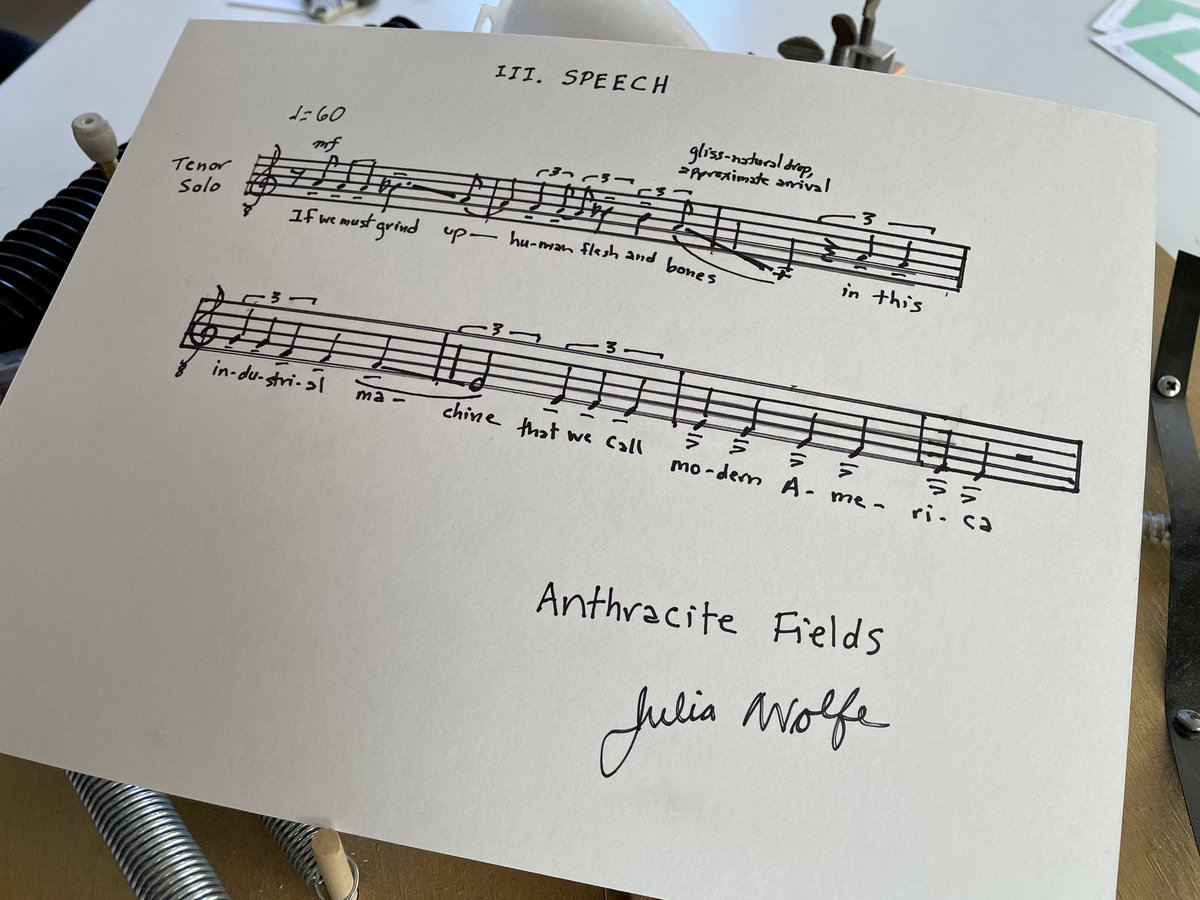 III. SPEECH
♩=60
mf
gliss-natural drop,
approximate arrival
Tenor
Solo
3 3 3 3
8
If we must grind up — hu-man flesh and bones in this
3 3 3
8
in-du-stri-al ma- chine that we call mo-dern A- me- ri- ca
Anthracite Fields
Julia Wolfe